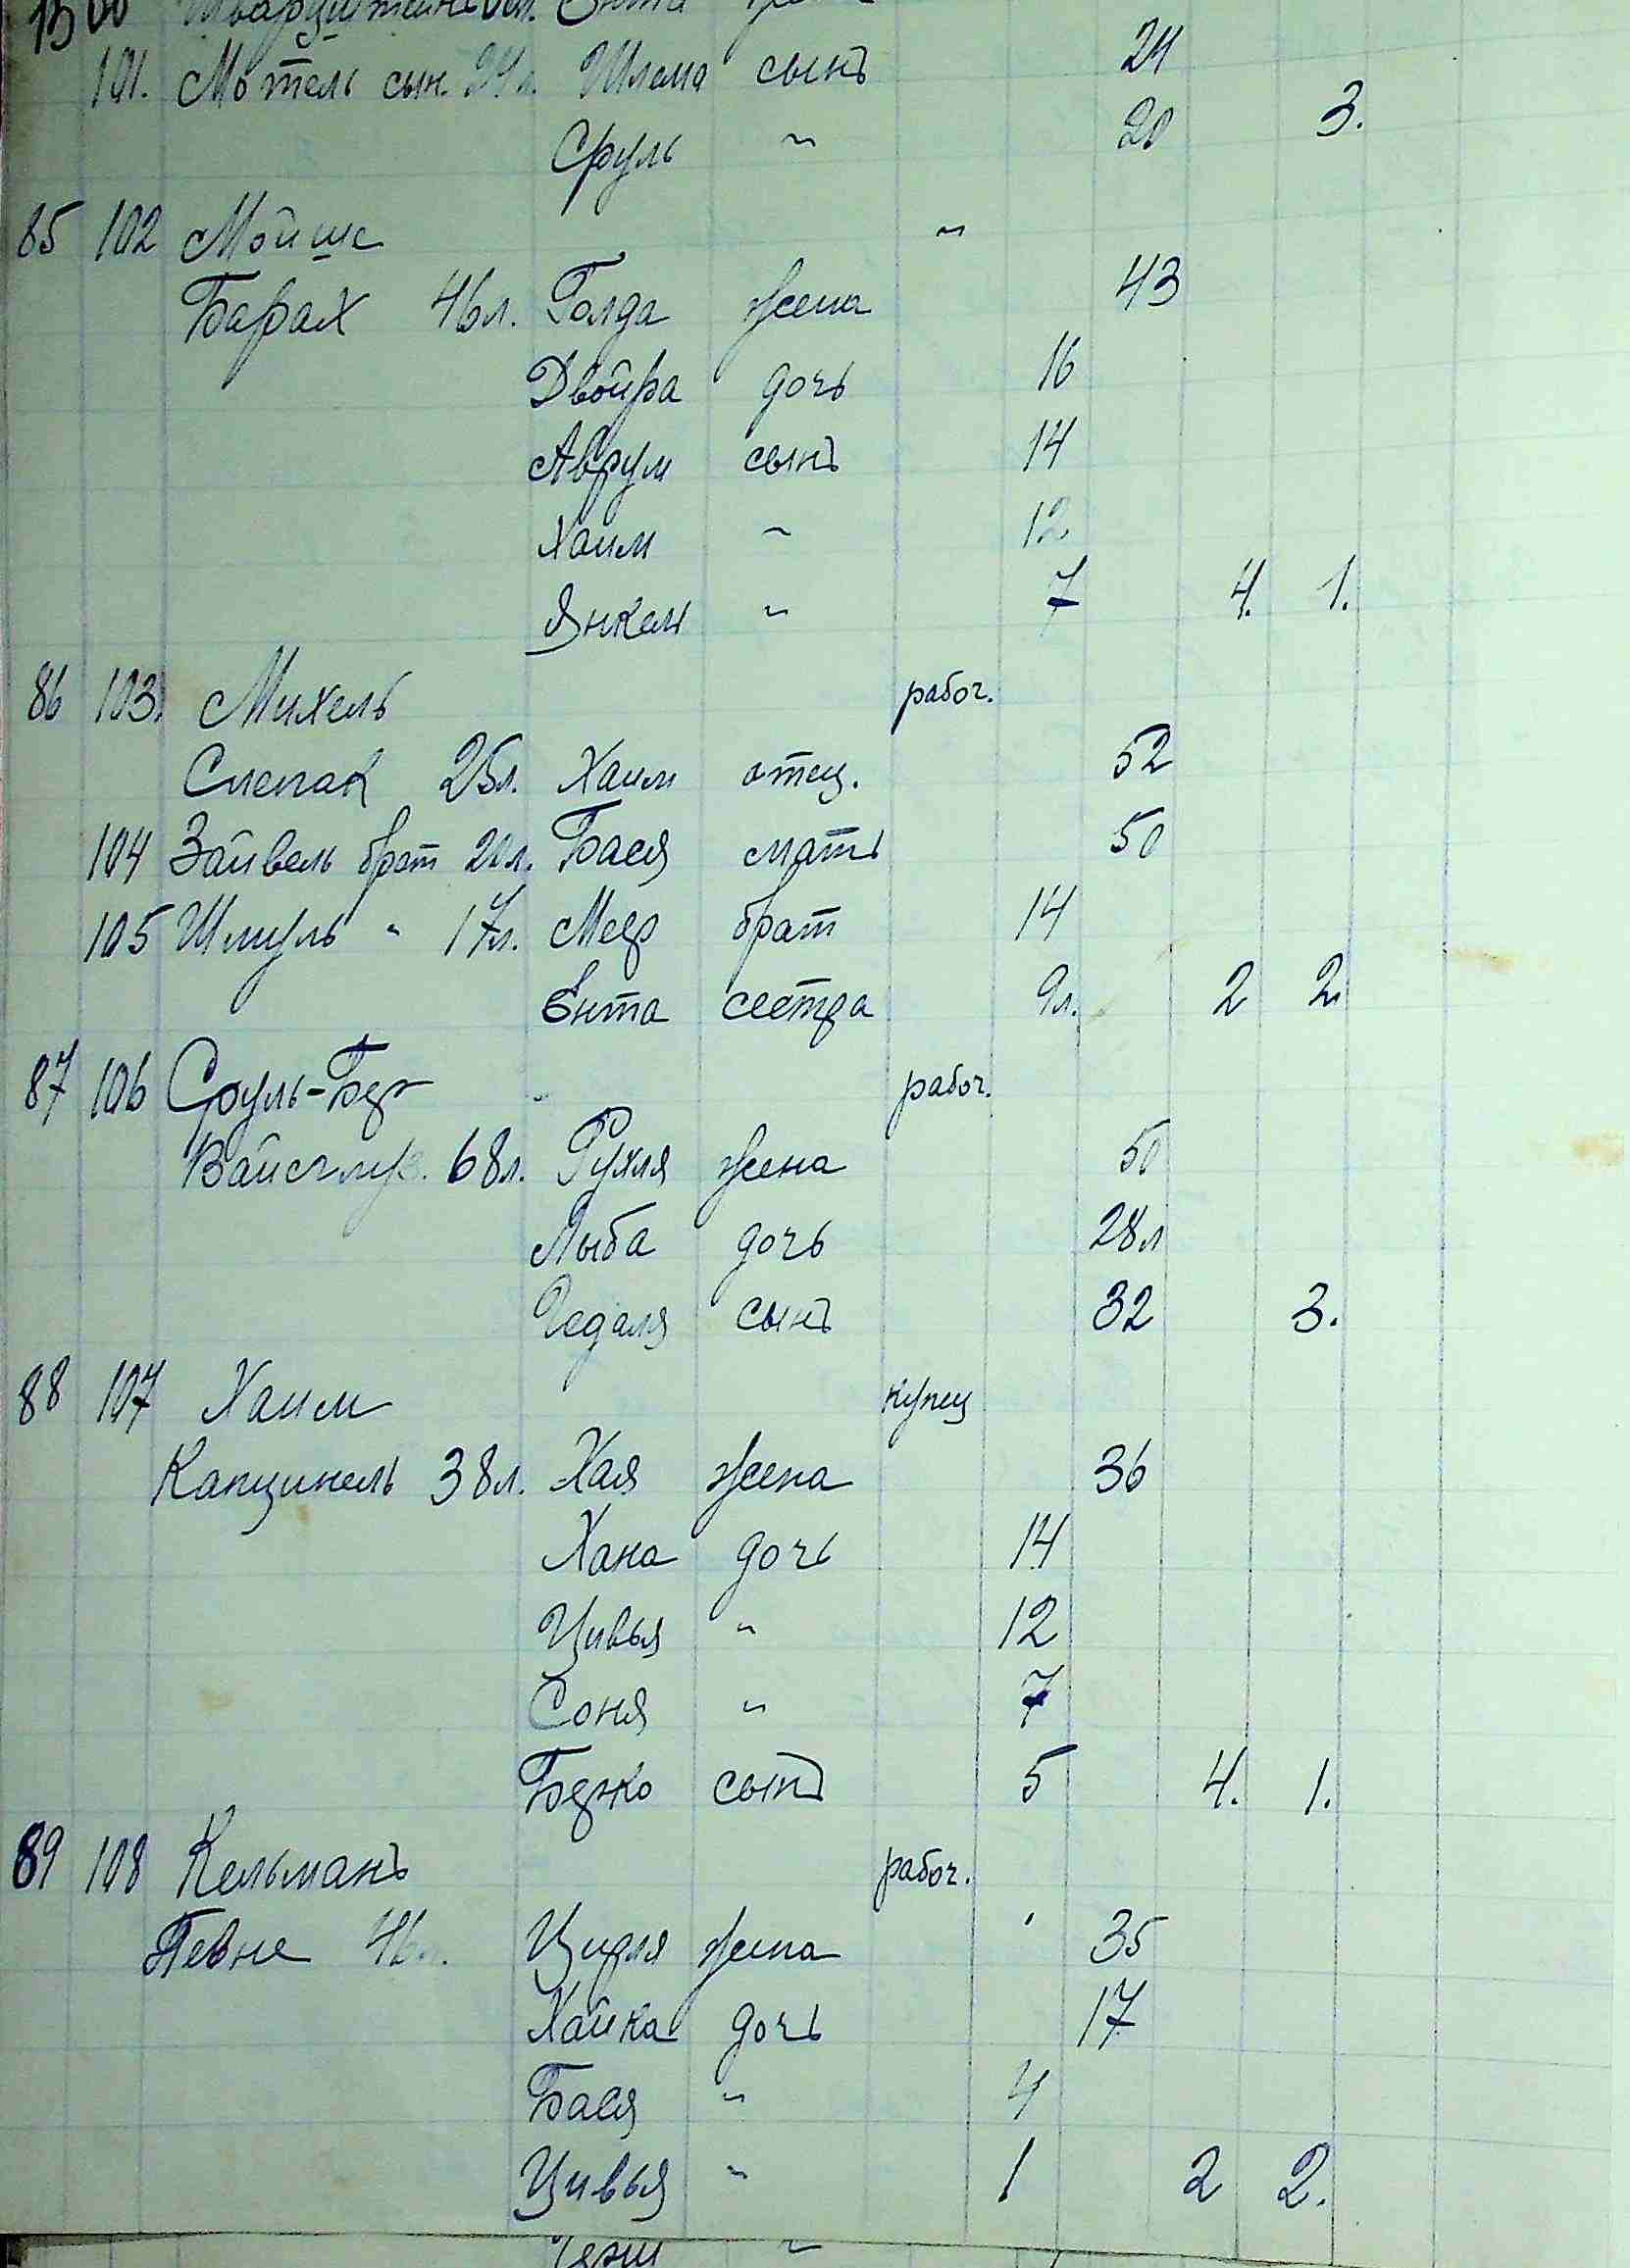 101. Мотель сын. Шлема сынъ 24
Сруль " 20 3.
85 102 Мойше "
Барах 46л. Голда жена 43
Двойра дочь 16
Аврум сынъ 14
Хаим " 12
Янкель " 7 4. 1.
86 103. Михель рабоч.
Слепак 25л. Хаим отец. 52
104 Зайвель брат 20л. Бася мать 50
105 Шмуль " 17л. Меер брат 14
Ента сестра 9л. 2 2
87 106 Сруль-Бер рабоч.
68л. Рухля жена 50
Лыба дочь 28л
Гедаля сынъ 32 3.
88 107 Хаим купец
Капцинель 38л. Хая жена 36
Хана дочь 14
Цивья " 12
Соня " 7
Берко сынъ 5 4. 1.
89 108 Кельманъ рабоч.
Певне 46л. жена 35
Хайка дочь 17
Бася " 4
Цивья " 1 2 2.